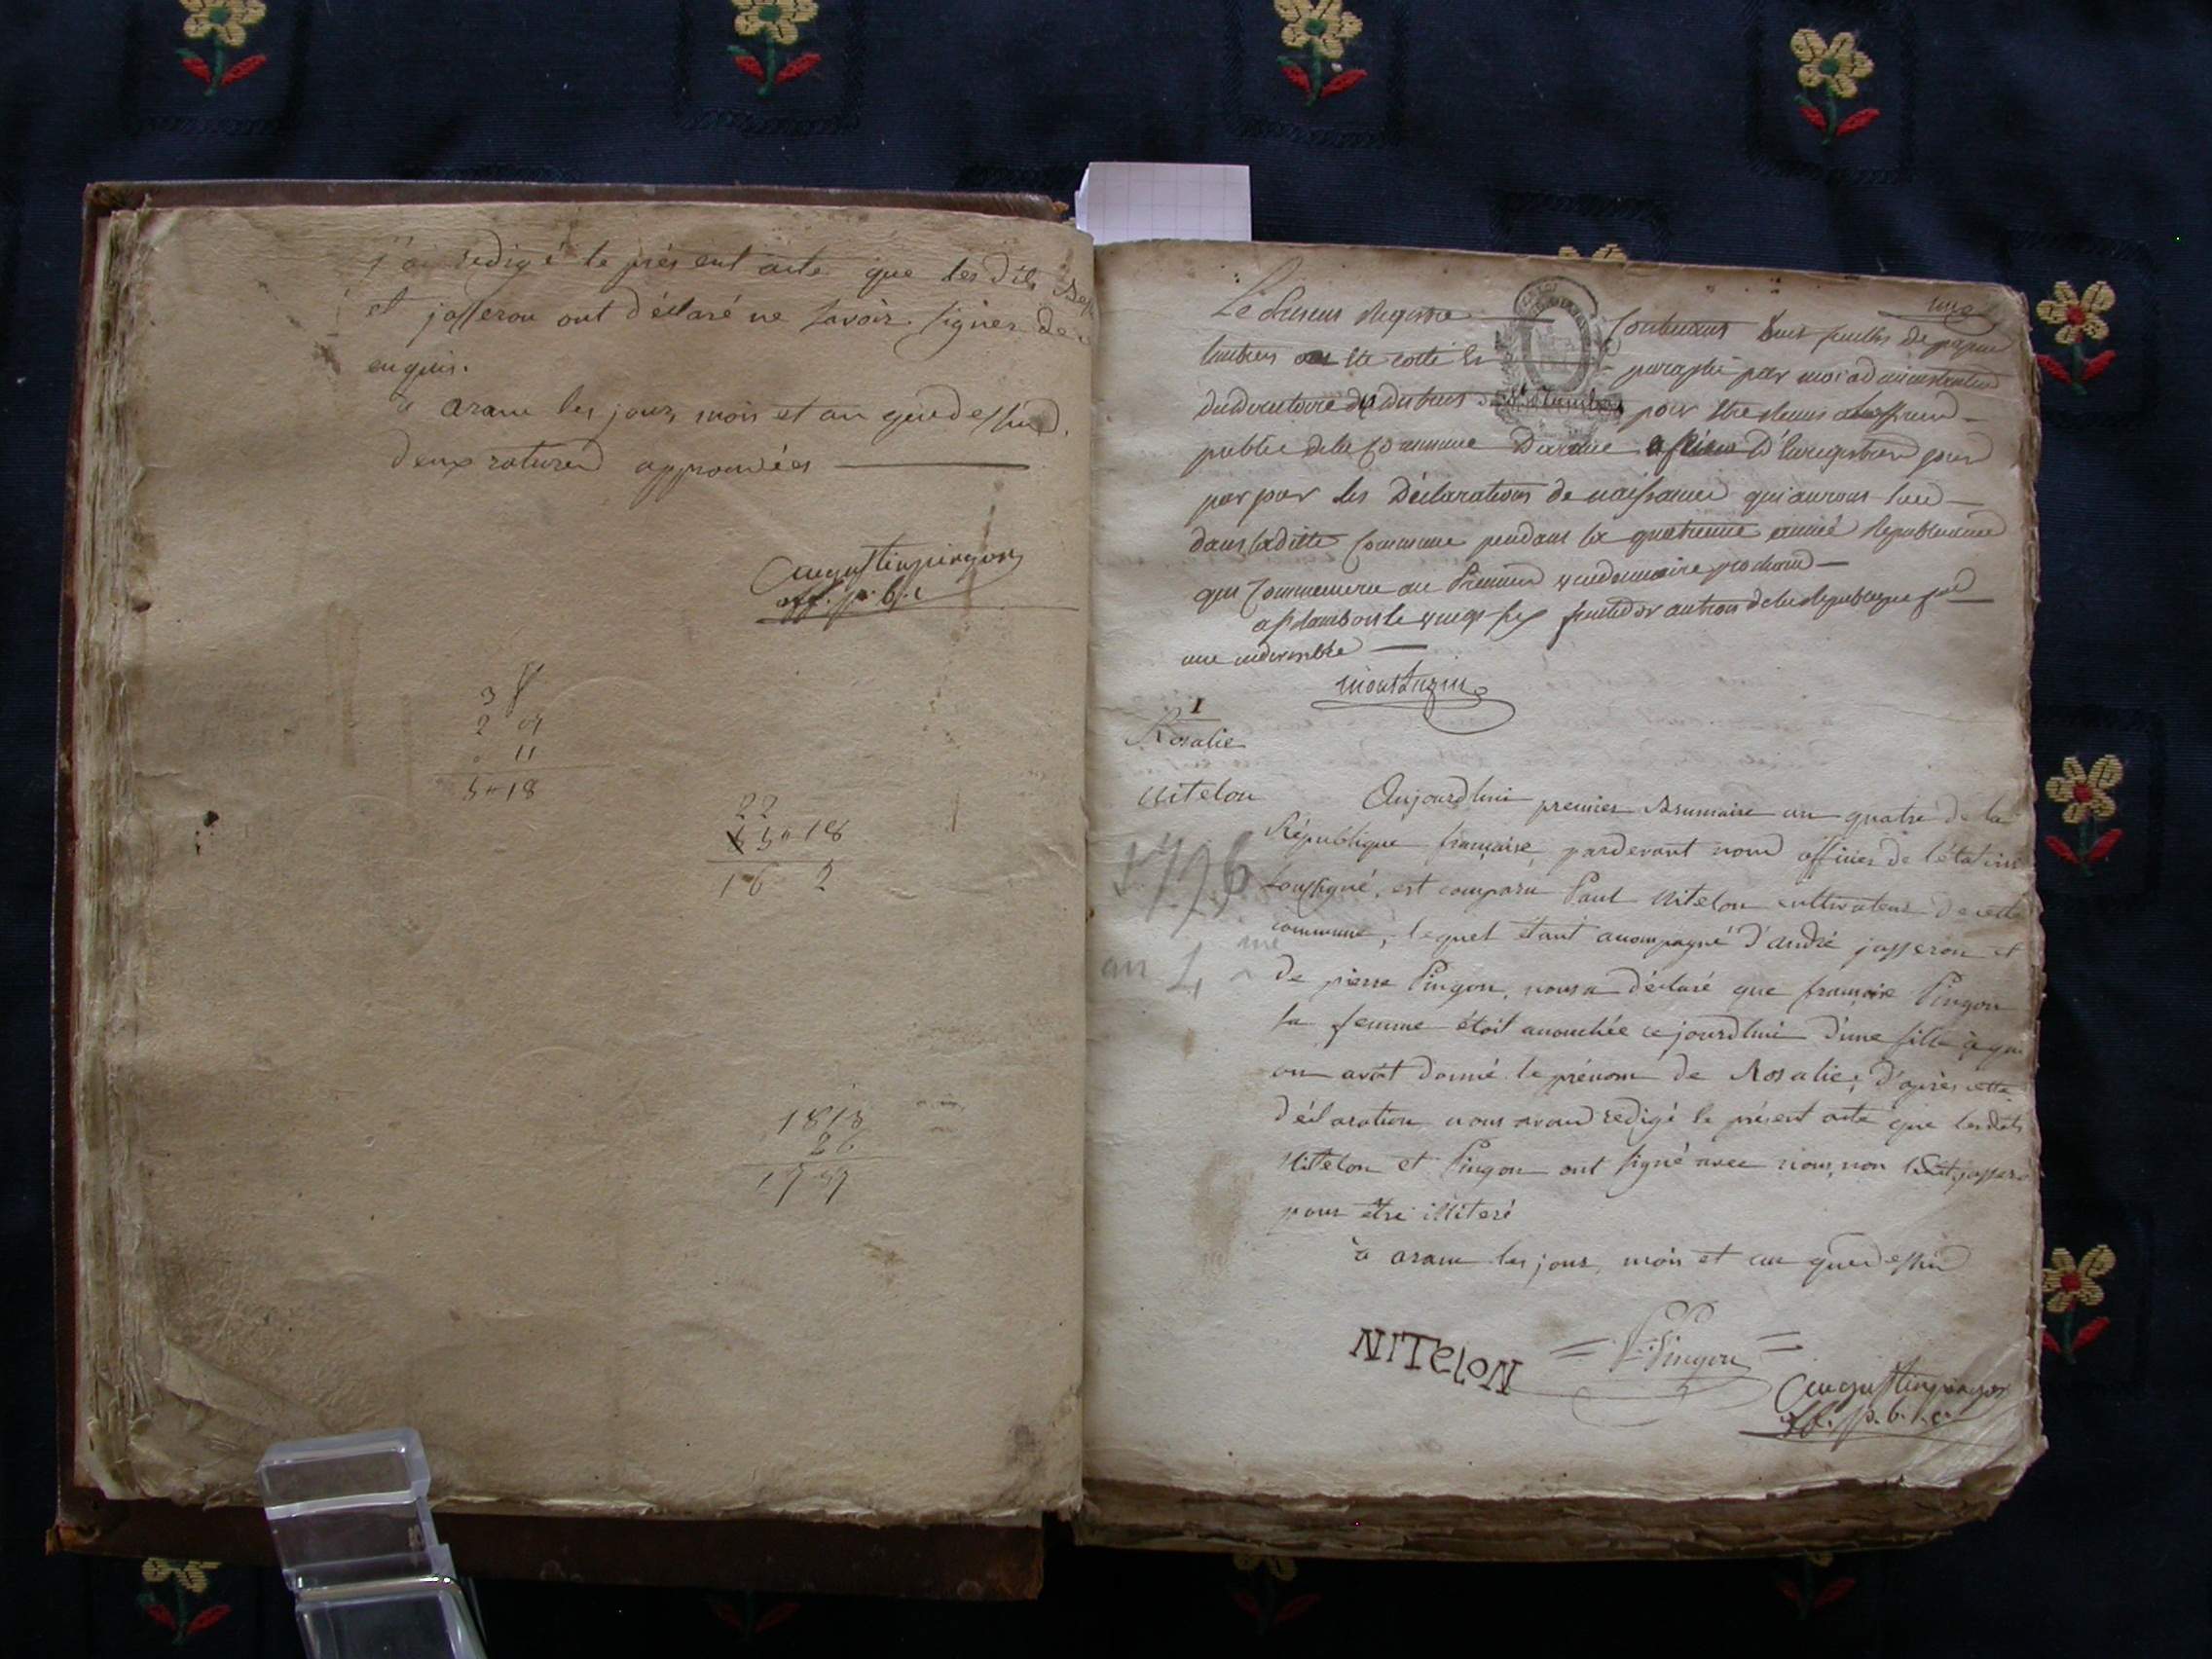 j'ai redigé le présent acte que les dits
et josseron ont déclaré ne savoir signer de
enquis.
à aranc les jour, mois et an que dessus.
deux ratures approuvées
augustin pingon
off. p. b. c
3
2
11
5 " 18
22
5 " 18
16 2
1813
26
une
Le présent Registre contenant huit feuilles de papier
timbres a été cotté et paraphé par moi administrateur
du directoire du district pour être remis a l'officier
public de la commune Daranc a l'enregistrer jour
par jour les Déclarations de naissances qui auront lieu
dans laditte commune pendant la quatrieme année Republicaine
qui commencera au Premier vendemiaire prochain
a st Rambert le vingt six fructidor an trois de la republique
une indivisible
I
Rosalie
Nitelon
1796
an 4 me
Aujourdhui premier Brumaire an quatre de la
République française, pardevant nous officier de l'état civil
soussigné, est comparu Paul Nitelon cultivateur de cette
commune, lequel étant acompagné d'andré josseron et
de pierre Pingon, nous a déclaré que françoise Pingon
sa femme étoit acouchée ce jourdhui d'une fille à qui
on avoit donné le prénom de Rosalie; d'après cette
déclaration nous avons redigé le présent acte que lesdits
Nitelon et Pingon ont signé avec nous, non ledit josseron
pour être illiteré
à aranc les jour, mois et an que dessus
NITelON
= P. Pingon =
augustin pingon
off. p. b. c.